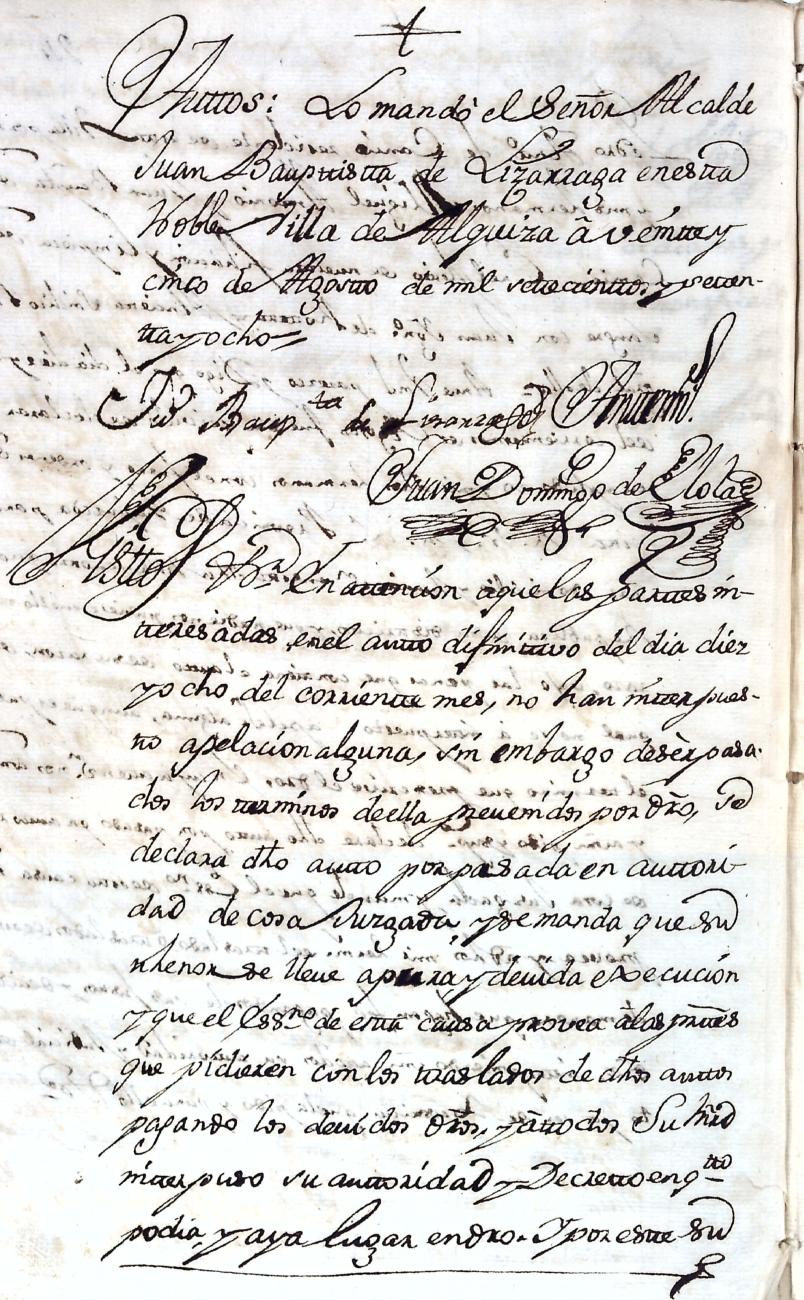 Auttos: Lo mandò el Señor Alcalde
Juan Bauptistta de Lizarraga en estta
Noble Villa de Alquiza â veintte y
cinco de Agostto de mil settecienttos y setten-
tta y ocho
Juº Baupᵗᵃ de Lizarraga Antemi.
Juan Domingo de Elola
Auto
Vistto En attencion aque las parttes in-
tteresadas, en el autto difinittivo del dia diez
y ocho del corrientte mes, no han intterpues-
tto apelacion alguna, sin embargo de sèr pasa-
dos los tterminos de ella prevenidos por dr̃o, se
declara dh̃o autto por pasada en auttori-
dad de cosa Juzgada, y se manda que su
thenor se lleve apura y devida execución
y que el Essⁿº de estta causa provea âlas prttẽs
que pidieren con los ttraslados de dh̃os auttos
pagando los devidos dr̃os, y âttodos Su Mrd̃
intterpuso su auttoridad y Decretto en qᵗᵗᵒ
podia, y aya lugar en dr̃o. Y por estte su